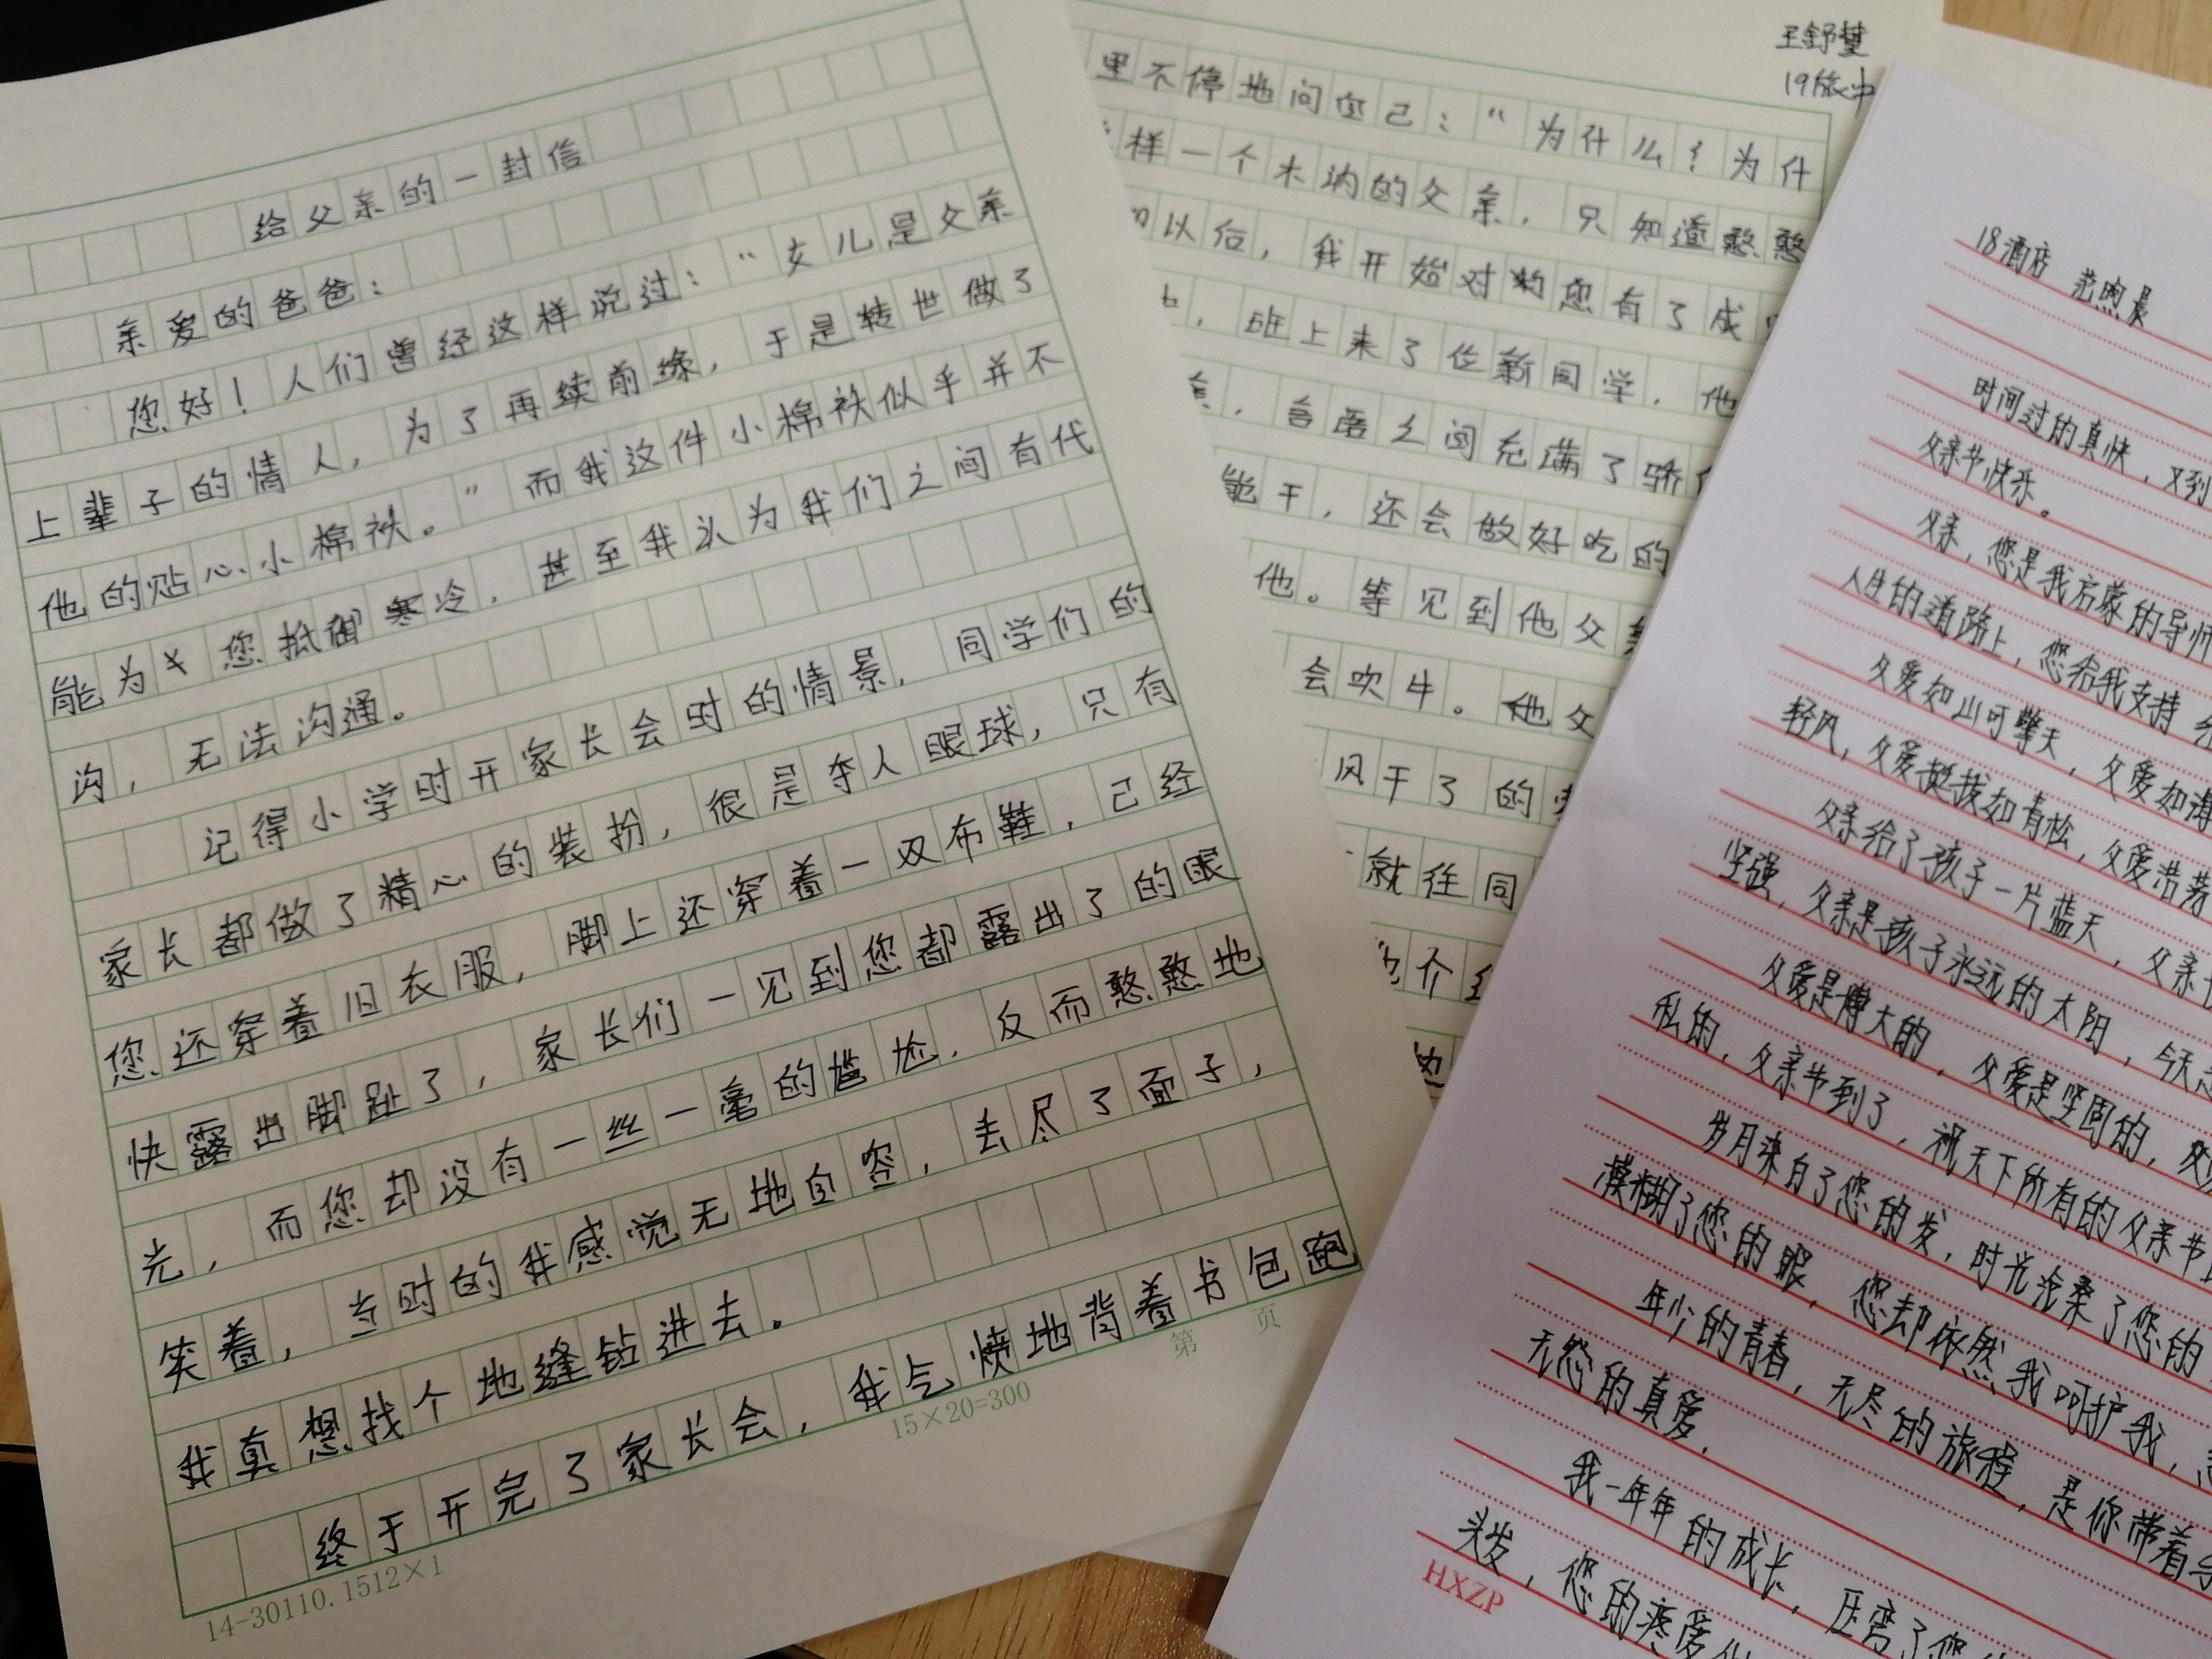 给父亲的一封信
亲爱的爸爸：
您好！人们曾经这样说过：“女儿是父亲
上辈子的情人，为了再续前缘，于是转世做了
他的贴心小棉袄。”而我这件小棉袄似乎并不
能为您抵御寒冷，甚至我认为我们之间有代
沟，无法沟通。
记得小学时开家长会时的情景，同学们的
家长都做了精心的装扮，很是夺人眼球，只有
您还穿着旧衣服，脚上还穿着一双布鞋，已经
快露出脚趾了，家长们一见到您都露出了的眼
光，而您却没有一丝一毫的尴尬，反而憨憨地
笑着，当时的我感觉无地自容，丢尽了面子，
我真想找个地缝钻进去。
终于开完了家长会，我气愤地背着书包跑
14-30110.1512×1
15×20=300
第 页
王舒
19旅中
里不停地问自己：“为什么？为什
样一个木讷的父亲，只知道憨憨
以后，我开始对您有了成
，班上来了位新同学，他
，言语之间充满了骄
能干，还会做好吃的
他。等见到他父
会吹牛。他父
风干了的
就往同
介
18酒店 范
时间过的真快，又到
父亲节快乐。
父亲，您是我启蒙的导师
人生的道路上，您给我支持
父爱如山可擎天，父爱如海
轻风，父爱挺拔如青松，父爱浩荡
父亲给了孩子一片蓝天，父亲
坚强，父亲是孩子永远的太阳，今天
父爱是博大的，父爱是坚固的，
私的，父亲节到了，祝天下所有的父亲节
岁月染白了您的发，时光沧桑了您的
模糊了您的眼，您却依然我呵护我，
年少的青春，无尽的旅程，是你带着
无怨的真爱，
我一年年的成长，压弯了您
头发，您的疼爱
HXZP